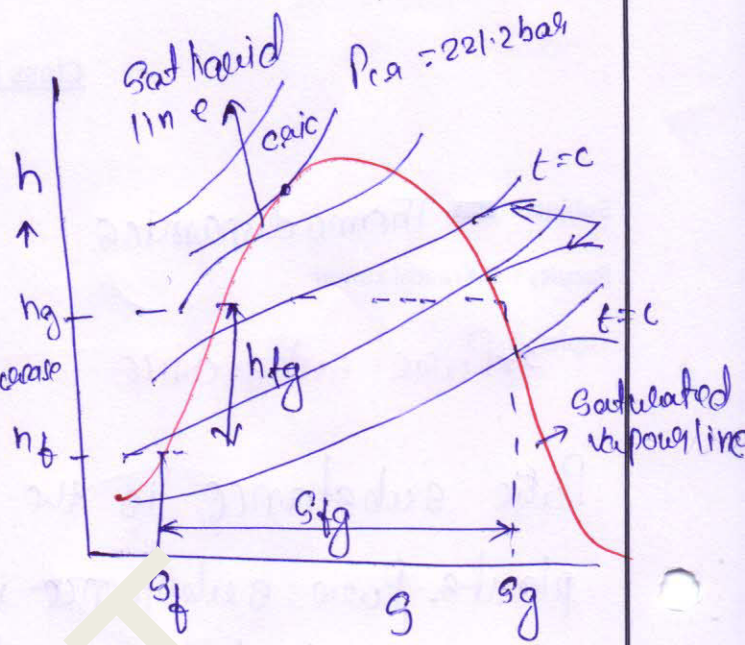 Sat liquid
line
Pcr = 221.2 bar
h
t=c
hg
hfg
t=c
hf
Saturated
vapour line
Sfg
Sf
S
Sg